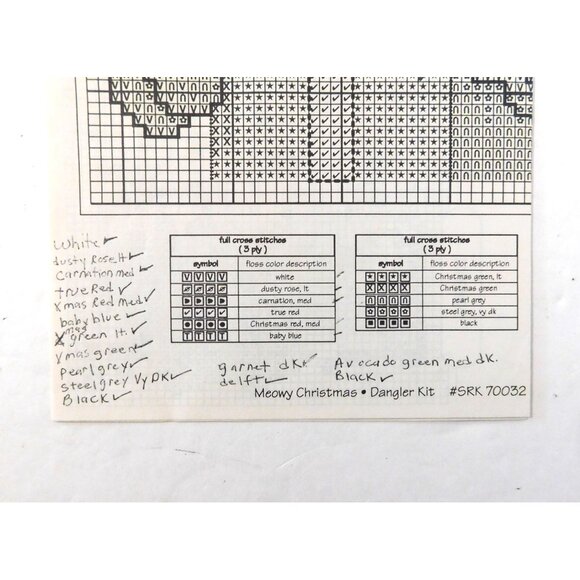 White ✓
dusty Rose, lt ✓
Carnation med ✓
true Red ✓
Xmas Red Med ✓
baby blue ✓
med
X green lt. ✓
Xmas green ✓
Pearl grey ✓
steel grey Vy DK ✓
Black ✓
full cross stitches
( 3 ply )
symbol floss color description
V V V V white
dusty rose, lt
carnation, med
✓ ✓ ✓ ✓ true red
Christmas red, med
T T T T baby blue
full cross stitches
( 3 ply )
symbol floss color description
★ ★ ★ ★ Christmas green, lt
X X X X Christmas green
∩ ∩ ∩ ∩ pearl grey
steel grey, vy dk
■ ■ ■ ■ black
garnet dk ✓
delft ✓
Avocado green med dk.
Black ✓
Meowy Christmas • Dangler Kit #SRK 70032